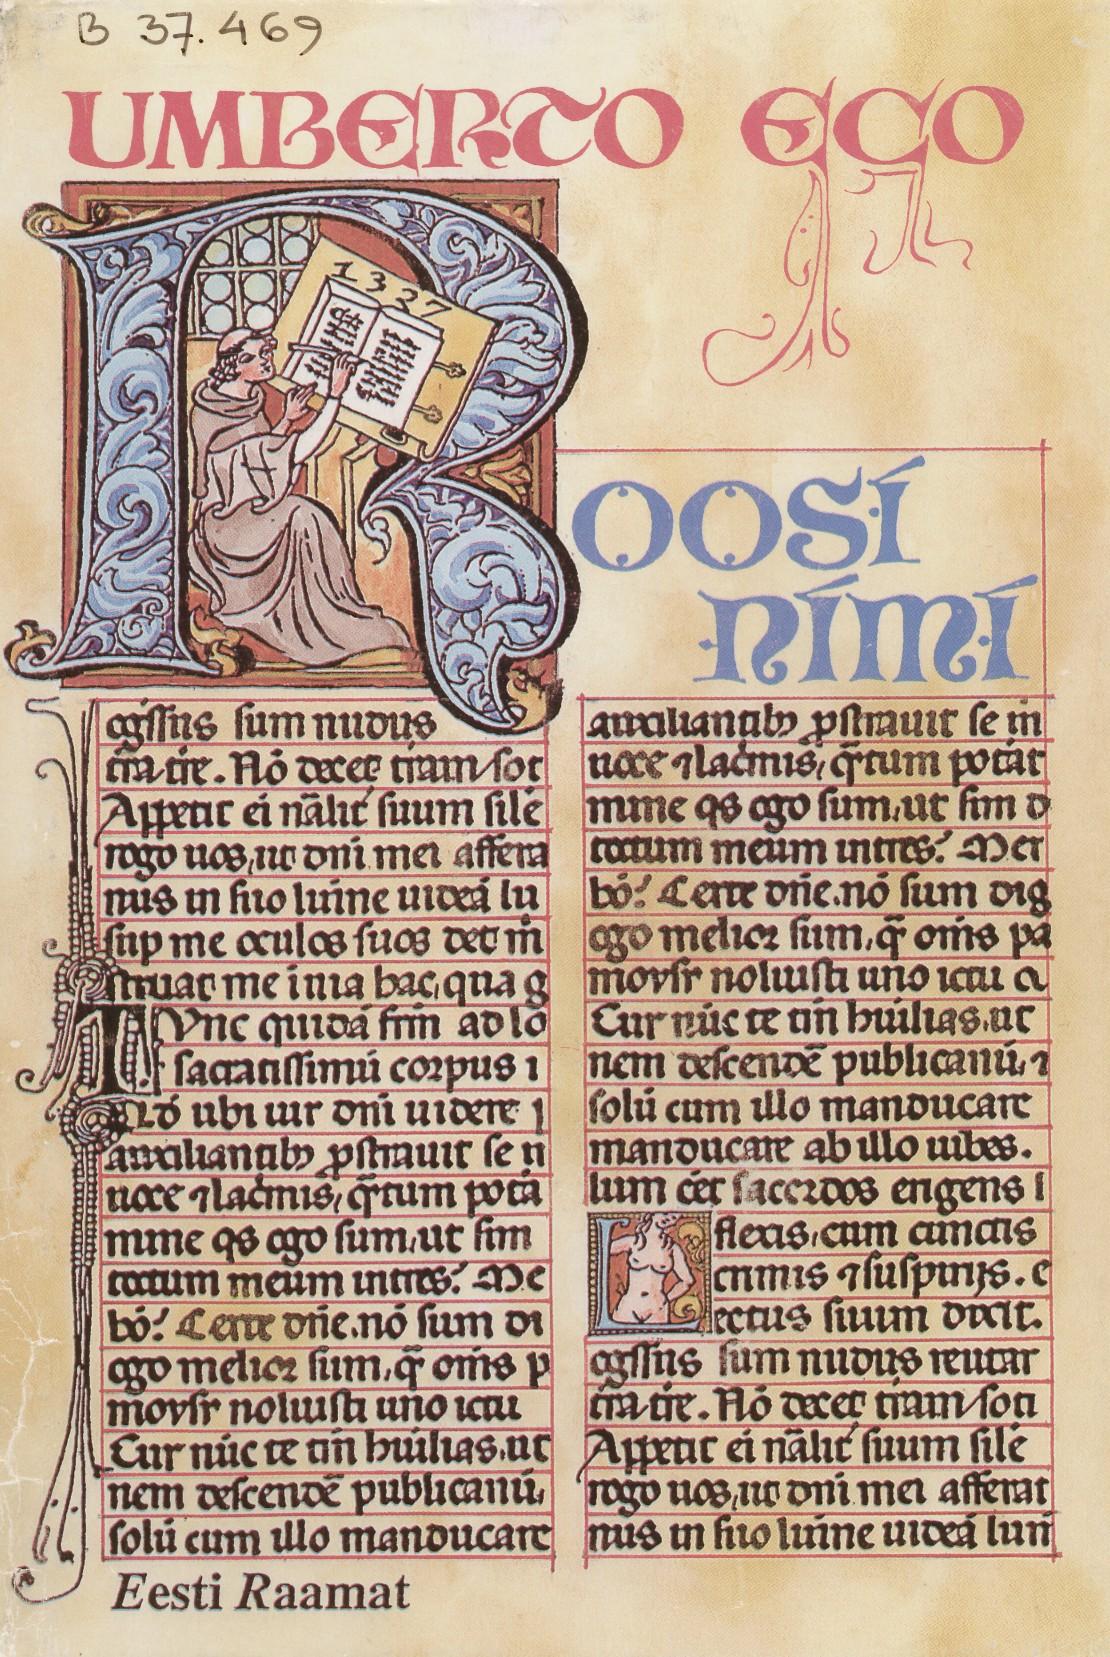 B 37.469
UMBERTO ECO
1327
ROOSI
NIMI
egssus sum nudus
tra tre. Nō decet tram sot
Appetit ei nālit suum silē
rogo uos, ut dni mei affera
nus in suo lumine uideā lu
sup me oculos suos det m̄
struat me in uia hac, qua g
TVnc quidā frm ad lo
sacratissimū corpus i
Nō ubi uir dni uidere i
auxiliantib; pstrauit se n
uoce ⁊ lac̄mis, q̄tum potā
mine qs ego sum, ut sim
tectum meum intres? Me
bō? Certe dn̄e. nō sum di
ego melior sum, q̄r om̄s p
moysr noluisti uno ictu
Cur nūc te tm̄ huilias, ut
nem descendē publicanū,
solū cum illo manducare
auxiliantib; pstrauit se in
uoce ⁊ lac̄mis, q̄tum potāt
mine qs ego sum, ut sim d
tectum meum intres? Mer
bō? Certe dn̄e. nō sum dig
ego melior sum, q̄r om̄s pa
moysr noluisti uno ictu a
Cur nūc te tm̄ huilias, ut
nem descendē publicanū, ⁊
solū cum illo manducare
manducare ab illo uibes.
lum c̄et sacerdos engens i
L flexis, cum cunctis
cnmis ⁊ suspirijs. e
ectus suum dixit.
egssus sum nudus reutar
tra tre. Nō decet tram soti
Appetit ei nālit suum silē
rogo uos, ut dni mei afferat
nus in suo lumine uideā lun
Eesti Raamat